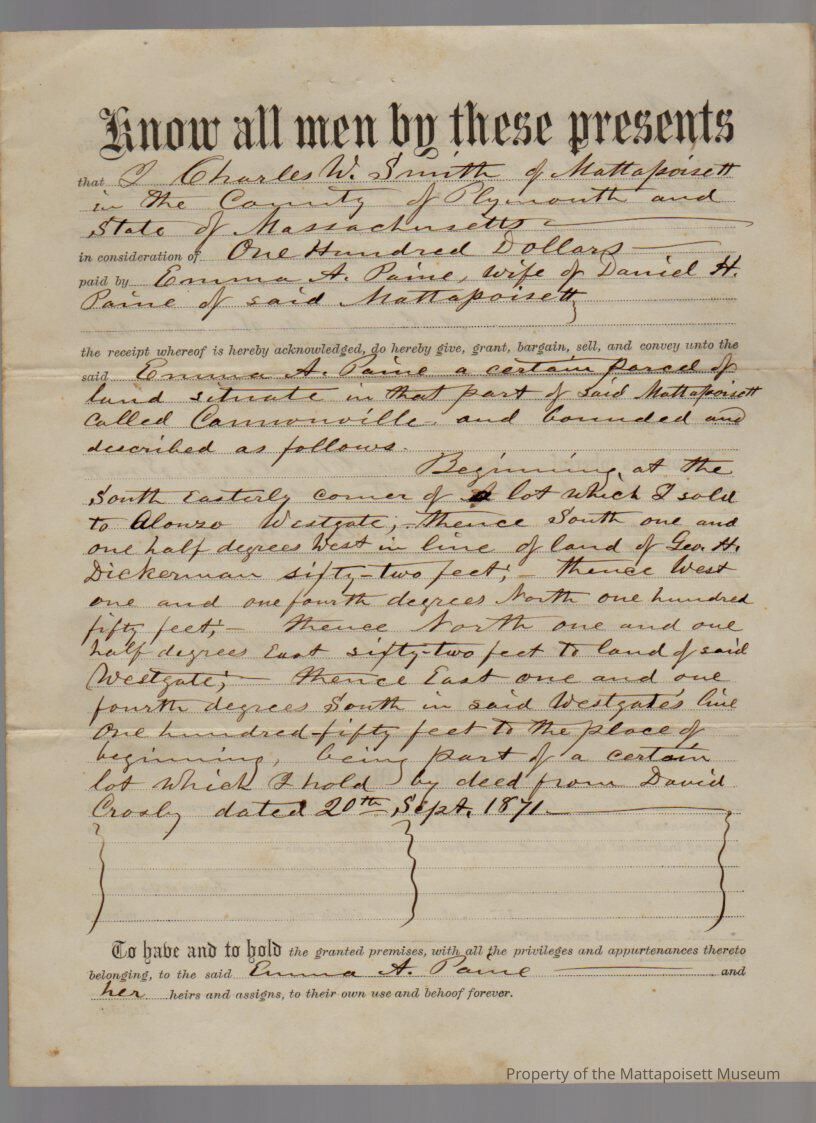 Know all men by these presents
that I Charles W. Smith of Mattapoisett
in the County of Plymouth and
State of Massachusetts
in consideration of One Hundred Dollars
paid by Emma A. Paine, wife of Daniel H.
Paine of said Mattapoisett
the receipt whereof is hereby acknowledged, do hereby give, grant, bargain, sell, and convey unto the
said Emma A. Paine a certain parcel of
land situate in that part of said Mattapoisett
called Cannonville, and bounded and
described as follows.
Beginning at the
South Easterly corner of a lot which I sold
to Alonzo Westgate, thence South one and
one half degrees West in line of land of Geo. H.
Dickerman sixty-two feet; - thence West
one and one fourth degrees North one hundred
fifty feet; - thence North one and one
half degrees East sixty-two feet to land of said
Westgate; - thence East one and one
fourth degrees South in said Westgate's line
One hundred fifty feet to the place of
beginning, being part of a certain
lot which I hold by deed from David
Crosby dated 20th Sept. 1871.
To have and to hold the granted premises, with all the privileges and appurtenances thereto
belonging, to the said Emma A. Paine and
her heirs and assigns, to their own use and behoof forever.
Property of the Mattapoisett Museum